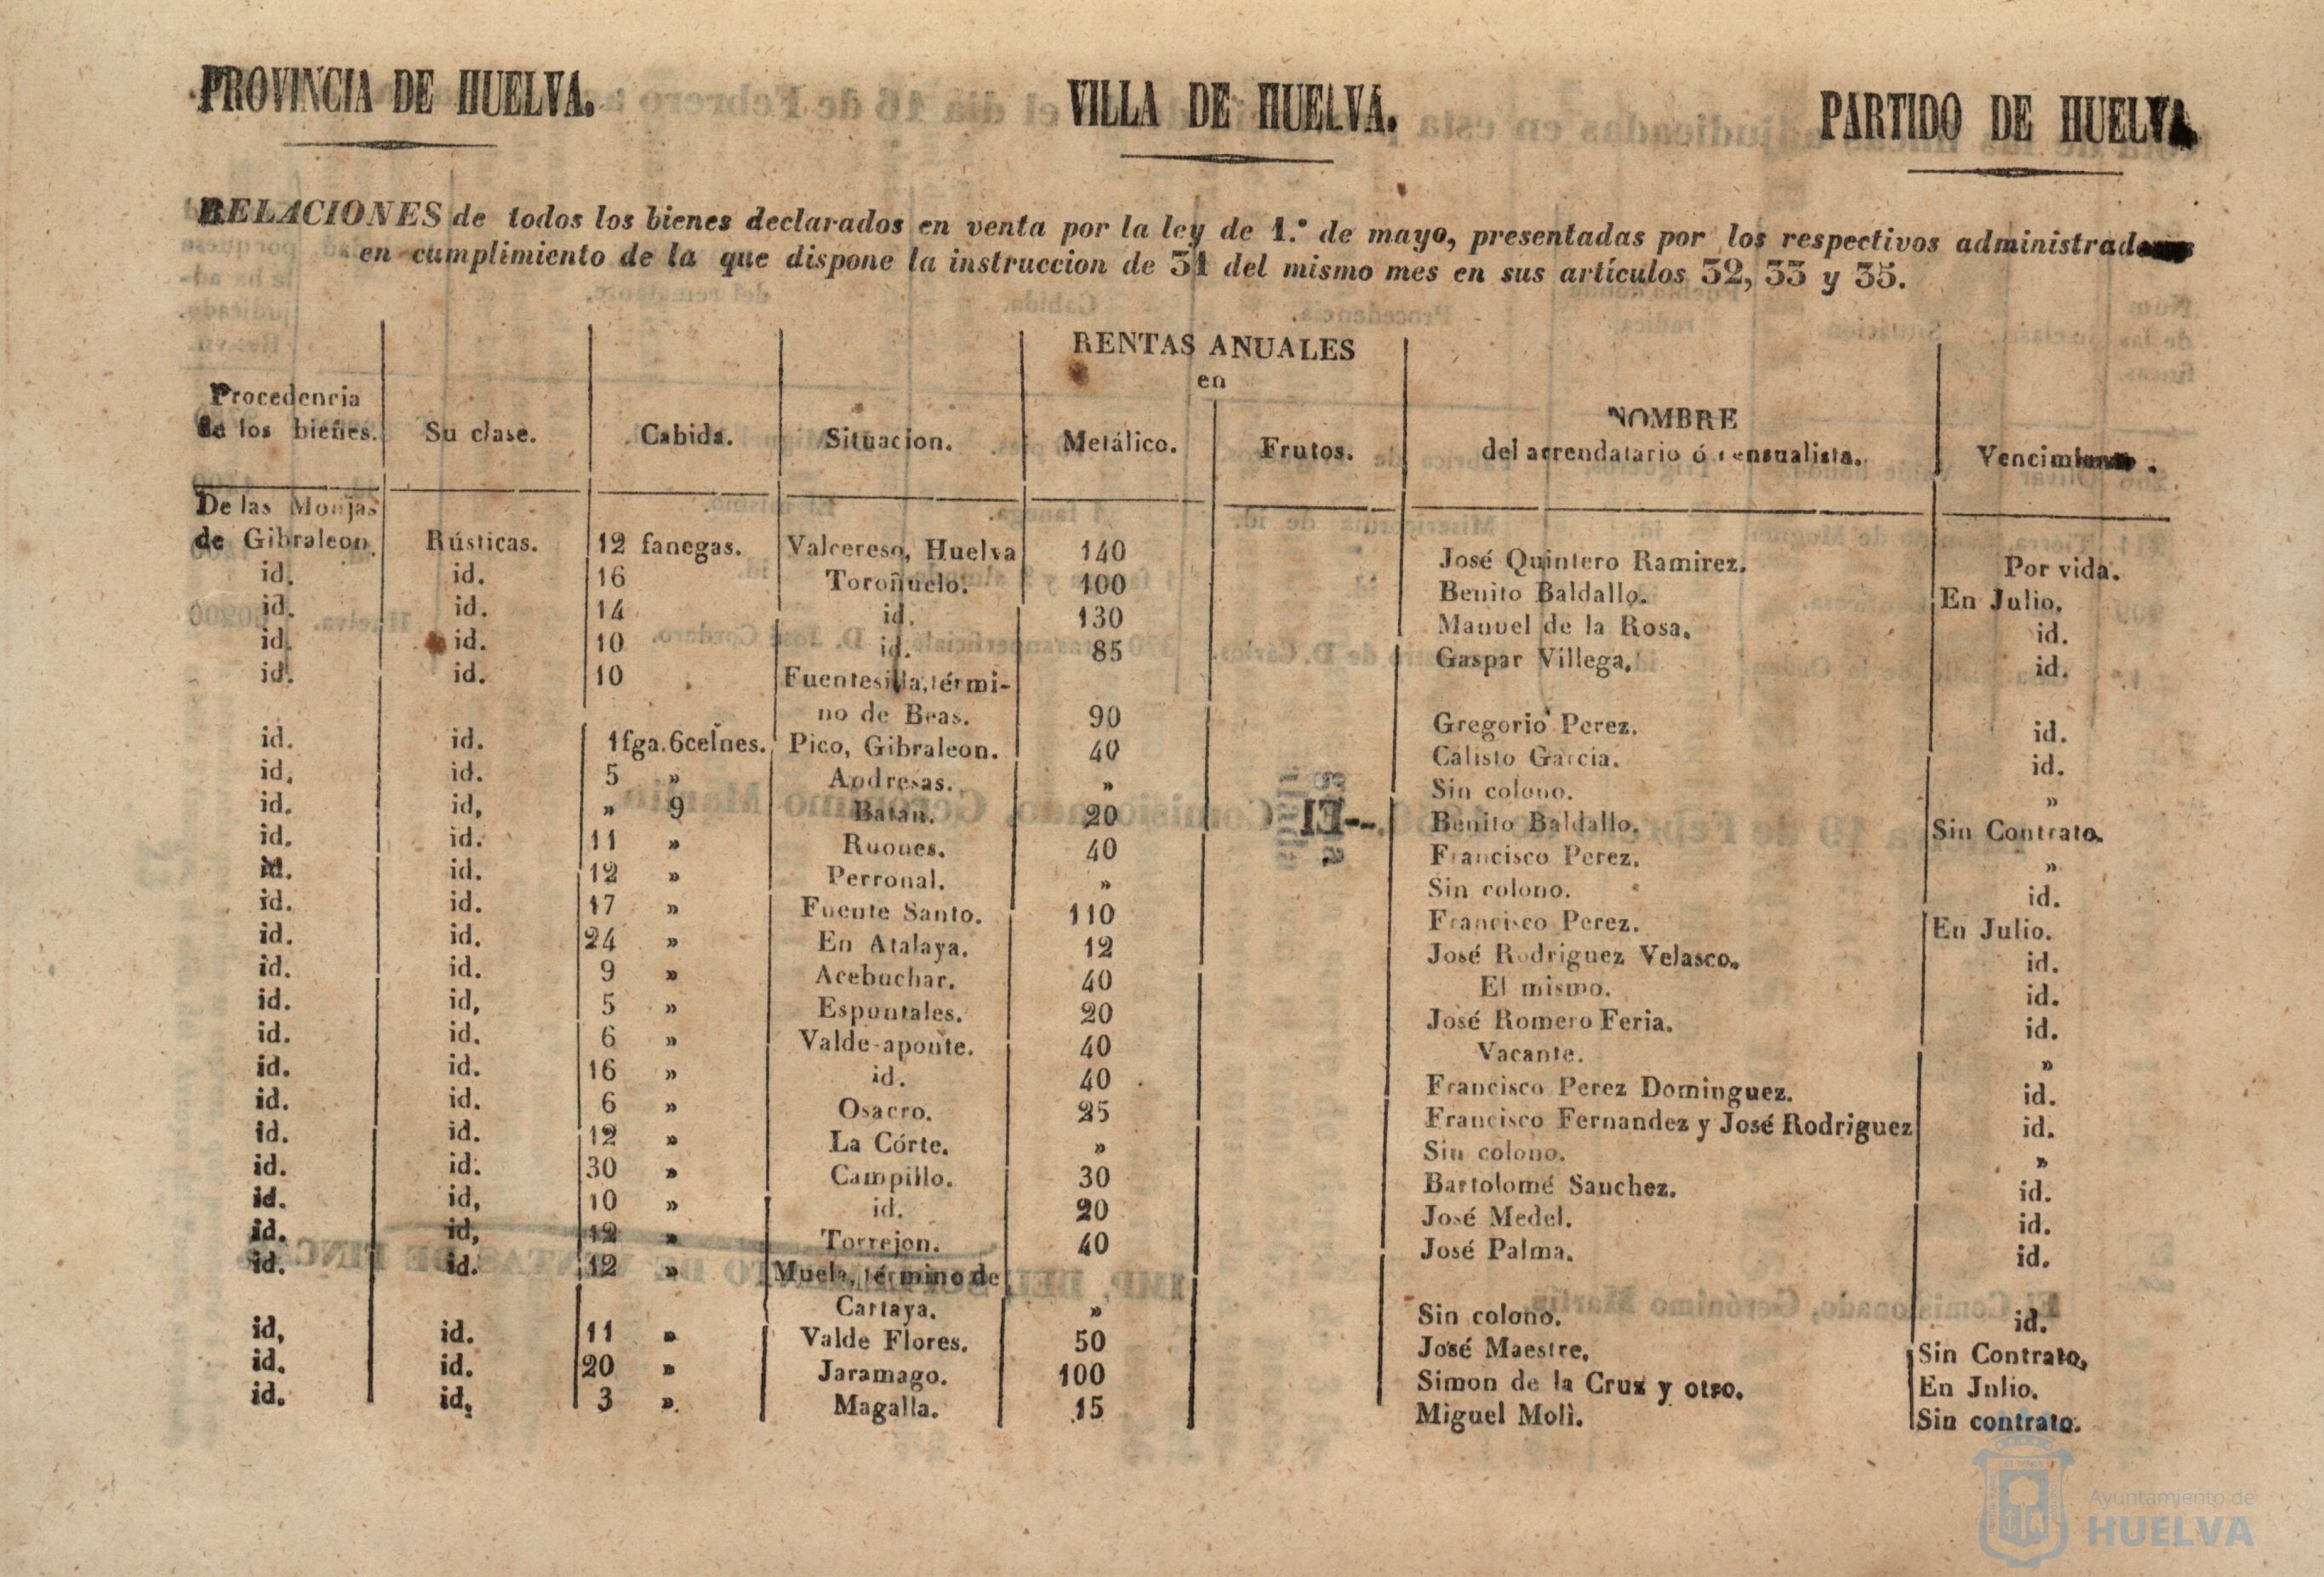 PROVINCIA DE HUELVA. VILLA DE HUELVA. PARTIDO DE HUELVA
RELACIONES de todos los bienes declarados en venta por la ley de 1.º de mayo, presentadas por los respectivos administradores
en cumplimiento de la que dispone la instruccion de 31 del mismo mes en sus artículos 32, 33 y 35.
RENTAS ANUALES
en
Procedencia
de los bienes. Su clase. Cabida. Situacion. Metálico. Frutos. NOMBRE
del arrendatario ó censualista. Vencimiento.
De las Monjas
de Gibraleon. Rústicas. 12 fanegas. Valcereso, Huelva 140 José Quintero Ramirez. Por vida.
id. id. 16 Toroñuelo. 100 Benito Baldallo. En Julio.
id. id. 14 id. 130 Manuel de la Rosa. id.
id. id. 10 id. 85 Gaspar Villega. id.
id. id. 10 Fuentesilla, térmi-
no de Beas. 90 Gregorio Perez. id.
id. id. 1 fga. 6 celnes. Pico, Gibraleon. 40 Calisto Garcia. id.
id. id. 5 » Andresas. » Sin colono. »
id. id, » 9 Batan. 20 Benito Baldallo. Sin Contrato.
id. id. 11 » Ruones. 40 Francisco Perez. »
id. id. 12 » Perronal. » Sin colono. id.
id. id. 17 » Fuente Santo. 110 Francisco Perez. En Julio.
id. id. 24 » En Atalaya. 12 José Rodriguez Velasco. id.
id. id. 9 » Acebuchar. 40 El mismo. id.
id. id, 5 » Espuntales. 20 José Romero Feria. id.
id. id. 6 » Valde-aponte. 40 Vacante. »
id. id. 16 » id. 40 Francisco Perez Dominguez. id.
id. id. 6 » Osacro. 25 Francisco Fernandez y José Rodriguez id.
id. id. 12 » La Córte. » Sin colono. »
id. id. 30 » Campillo. 30 Bartolomé Sanchez. id.
id. id, 10 » id. 20 José Medel. id.
id. id, 12 » Torrejon. 40 José Palma. id.
id. id. 12 » Muela, término de
Cartaya. » Sin colono. id.
id, id. 11 » Valde Flores. 50 José Maestre. Sin Contrato,
id. id. 20 » Jaramago. 100 Simon de la Cruz y otro. En Julio.
id. id. 3 » Magalla. 15 Miguel Molì. Sin contrato.
Ayuntamiento de
HUELVA